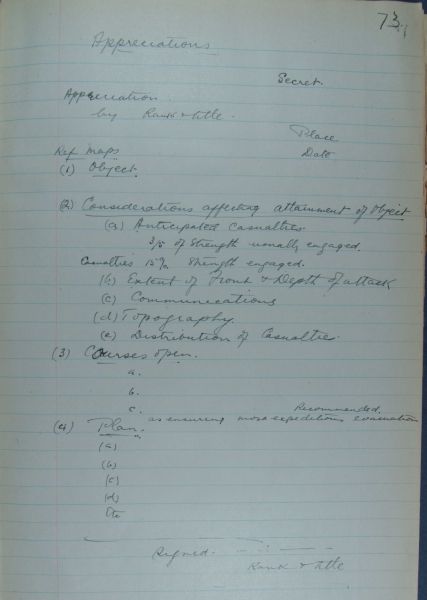 73.
Appreciations
Secret.
Appreciation.
by Rank & title.
Place
Date
Ref Maps
(1) Object.
(2) Considerations affecting attainment of Object
(a) Anticipated Casualties.
3/5 of Strength usually engaged.
Casualties 15% Strength engaged.
(b) Extent of Front & Depth of attack
(c) Communications
(d) Topography.
(e) Distribution of Casualties.
(3) Courses open.
a.
b.
c. Recommended.
as ensuring most expeditious evacuation
(4) Plan.
(a)
(b)
(c)
(d)
Etc
Signed.
Rank & title